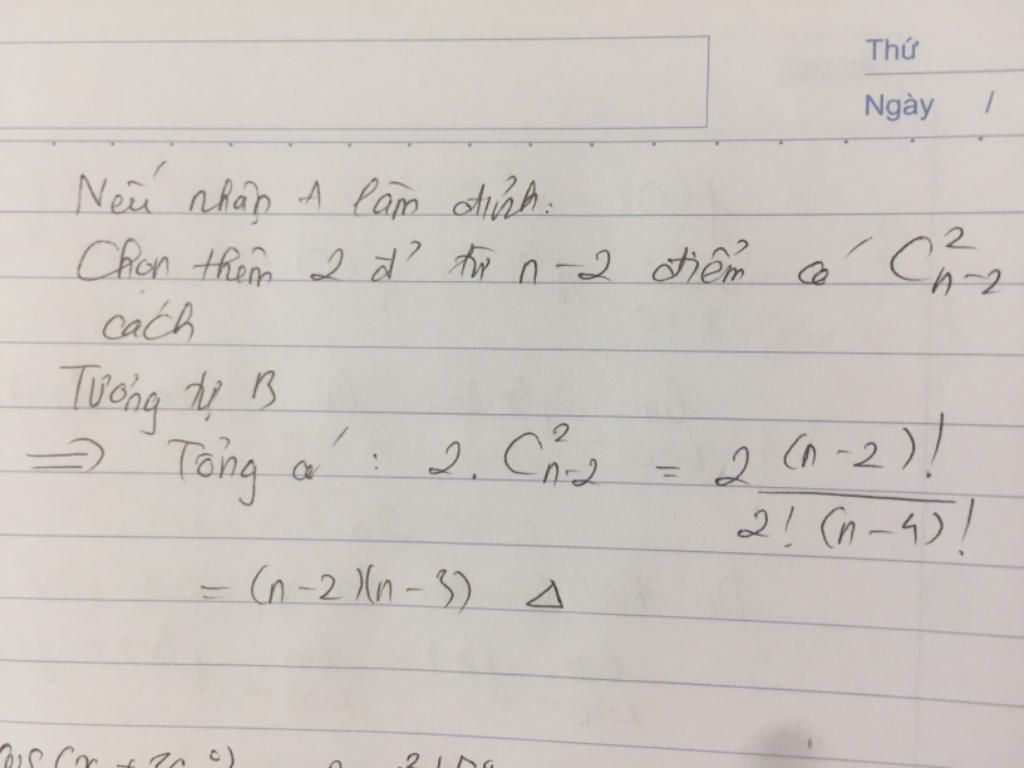 Thứ
Ngày /
Nếu nhận A làm đỉnh:
Chọn thêm 2 đ' từ n-2 điểm có C²ₙ₋₂
cách
Tương tự B
=> Tổng có: 2. C²ₙ₋₂ = 2 (n-2)! / 2! (n-4)!
= (n-2)(n-3) Δ